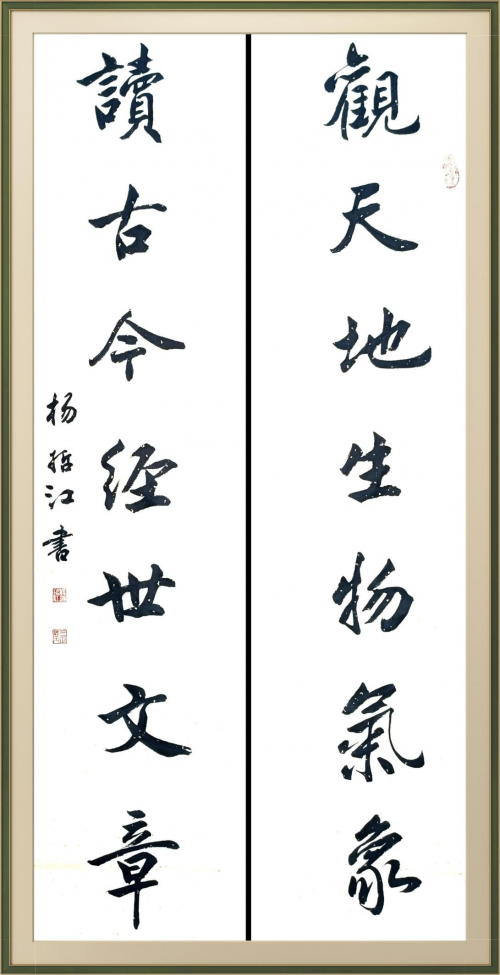 觀天地生物氣象
讀古今經世文章
杨哲江書